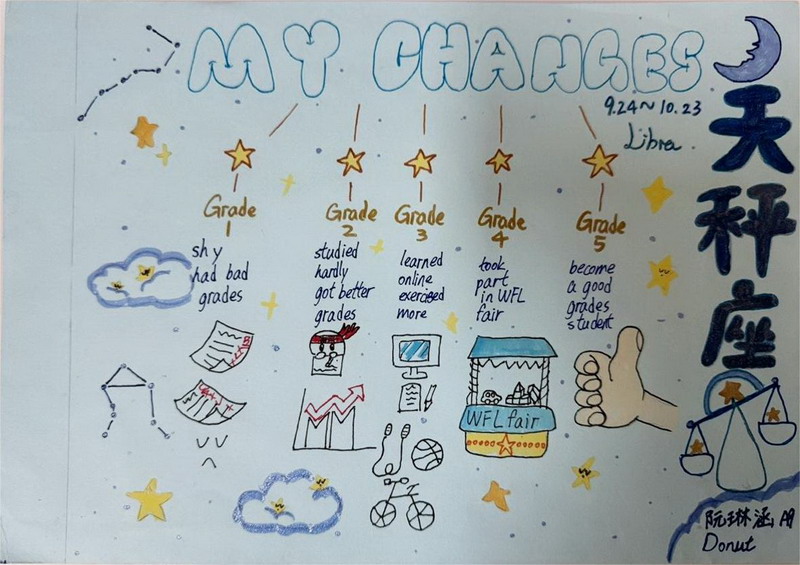 MY CHANGES
9.24~10.23
Libra.
天秤座
Grade
1
shy
had bad
grades
Grade
2
studied
hardly
got better
grades
Grade
3
learned
online
exercised
more
Grade
4
took
part
in WFL
fair
Grade
5
become
a good
grades
student
WFL fair
阮琳涵
Donut